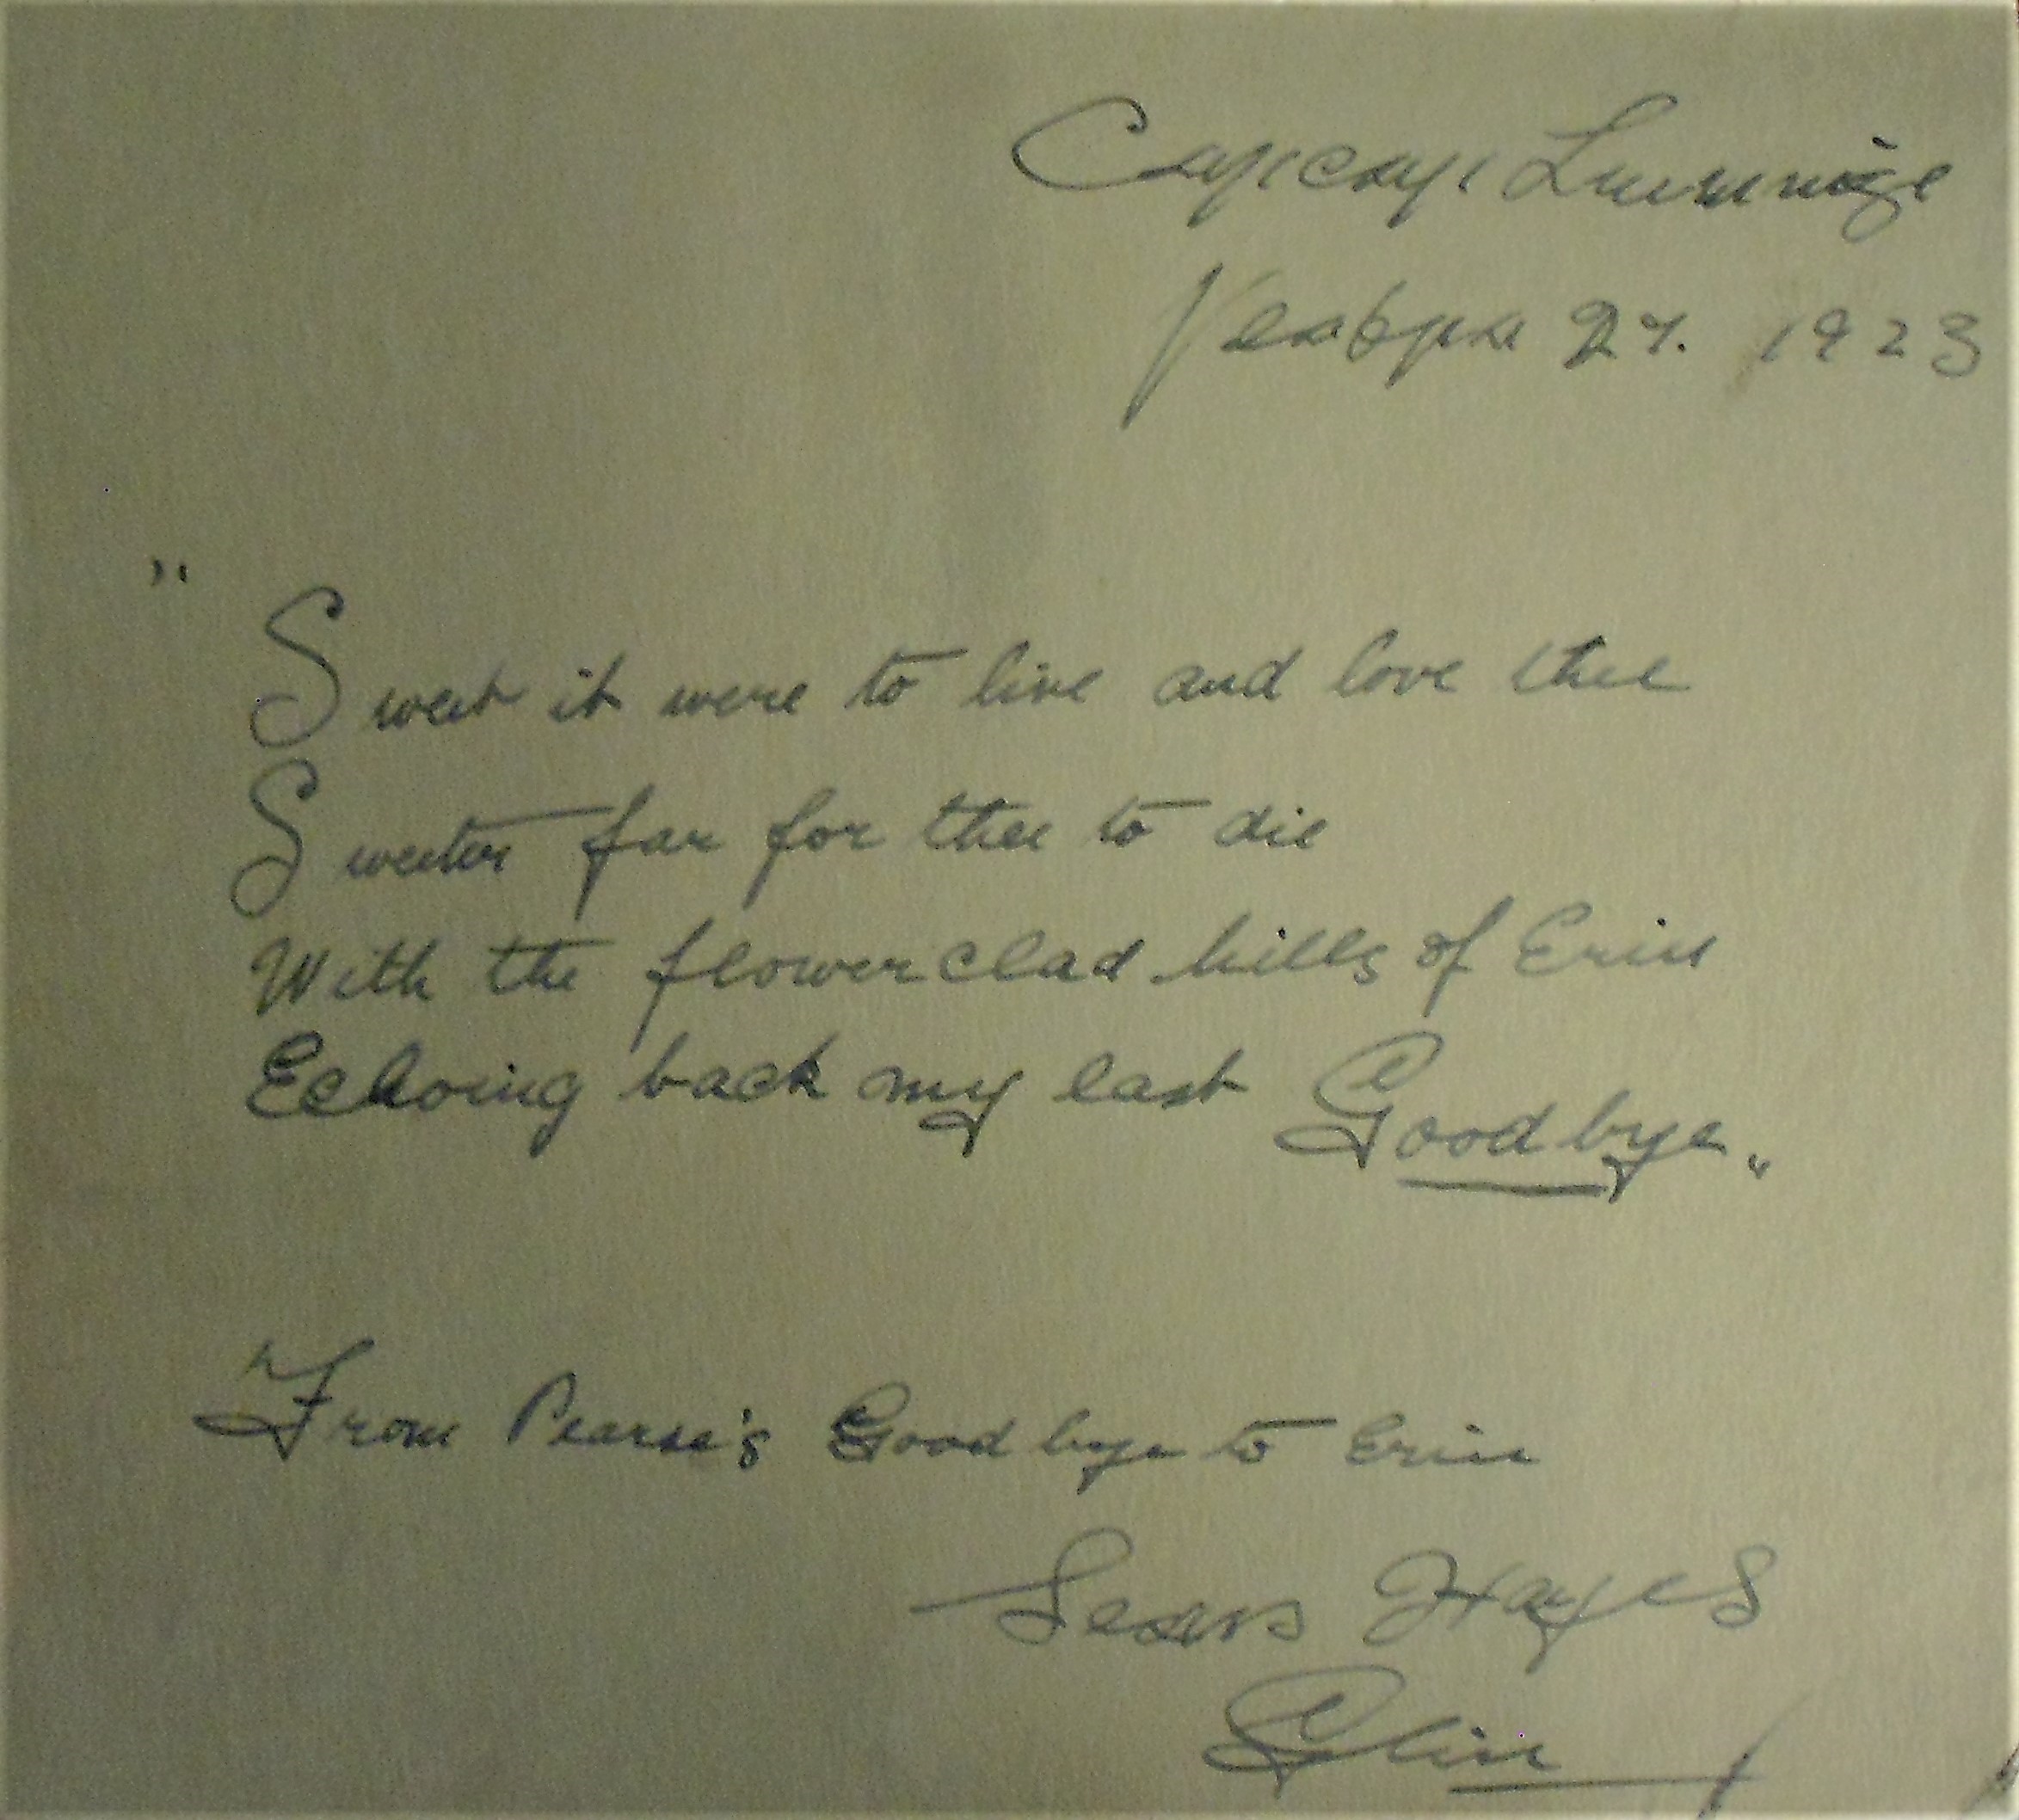 Carcair Luimniġe
Feabra 27. 1923
" Sweet it were to live and love thee
Sweeter far for thee to die
With the flowerclad hills of Erin
Echoing back my last Goodbye."
From Pearse's Goodbye to Erin
Hayes
Glin